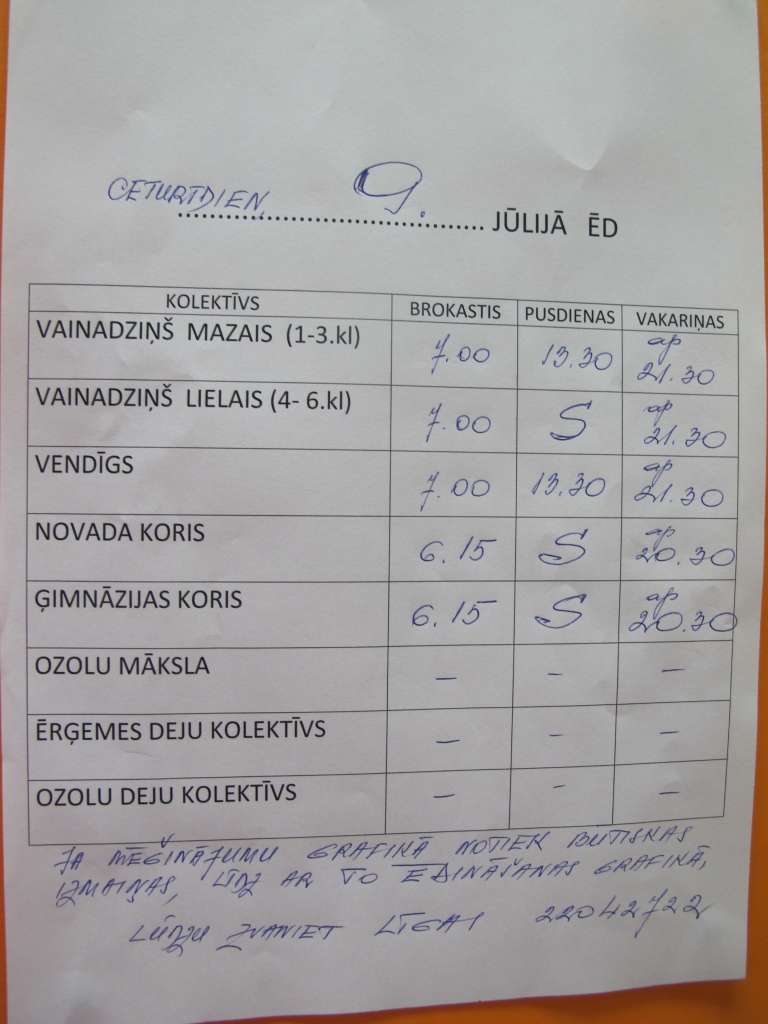 CETURTDIEN, 9. JŪLIJĀ ĒD
KOLEKTĪVS BROKASTIS PUSDIENAS VAKARIŅAS
VAINADZIŅŠ MAZAIS (1-3.kl) 7.00 13.30 ap 21.30
VAINADZIŅŠ LIELAIS (4- 6.kl) 7.00 S ap 21.30
VENDĪGS 7.00 13.30 ap 21.30
NOVADA KORIS 6.15 S ap 20.30
ĢIMNĀZIJAS KORIS 6.15 S ap 20.30
OZOLU MĀKSLA — — —
ĒRĢEMES DEJU KOLEKTĪVS — — —
OZOLU DEJU KOLEKTĪVS — — —
JA MĒĢINĀJUMU GRAFIKĀ NOTIEK BŪTISKAS
IZMAIŅAS, LĪDZ AR TO ĒDINĀŠANAS GRAFIKĀ,
LŪDZU ZVANIET LĪGAI 22042722